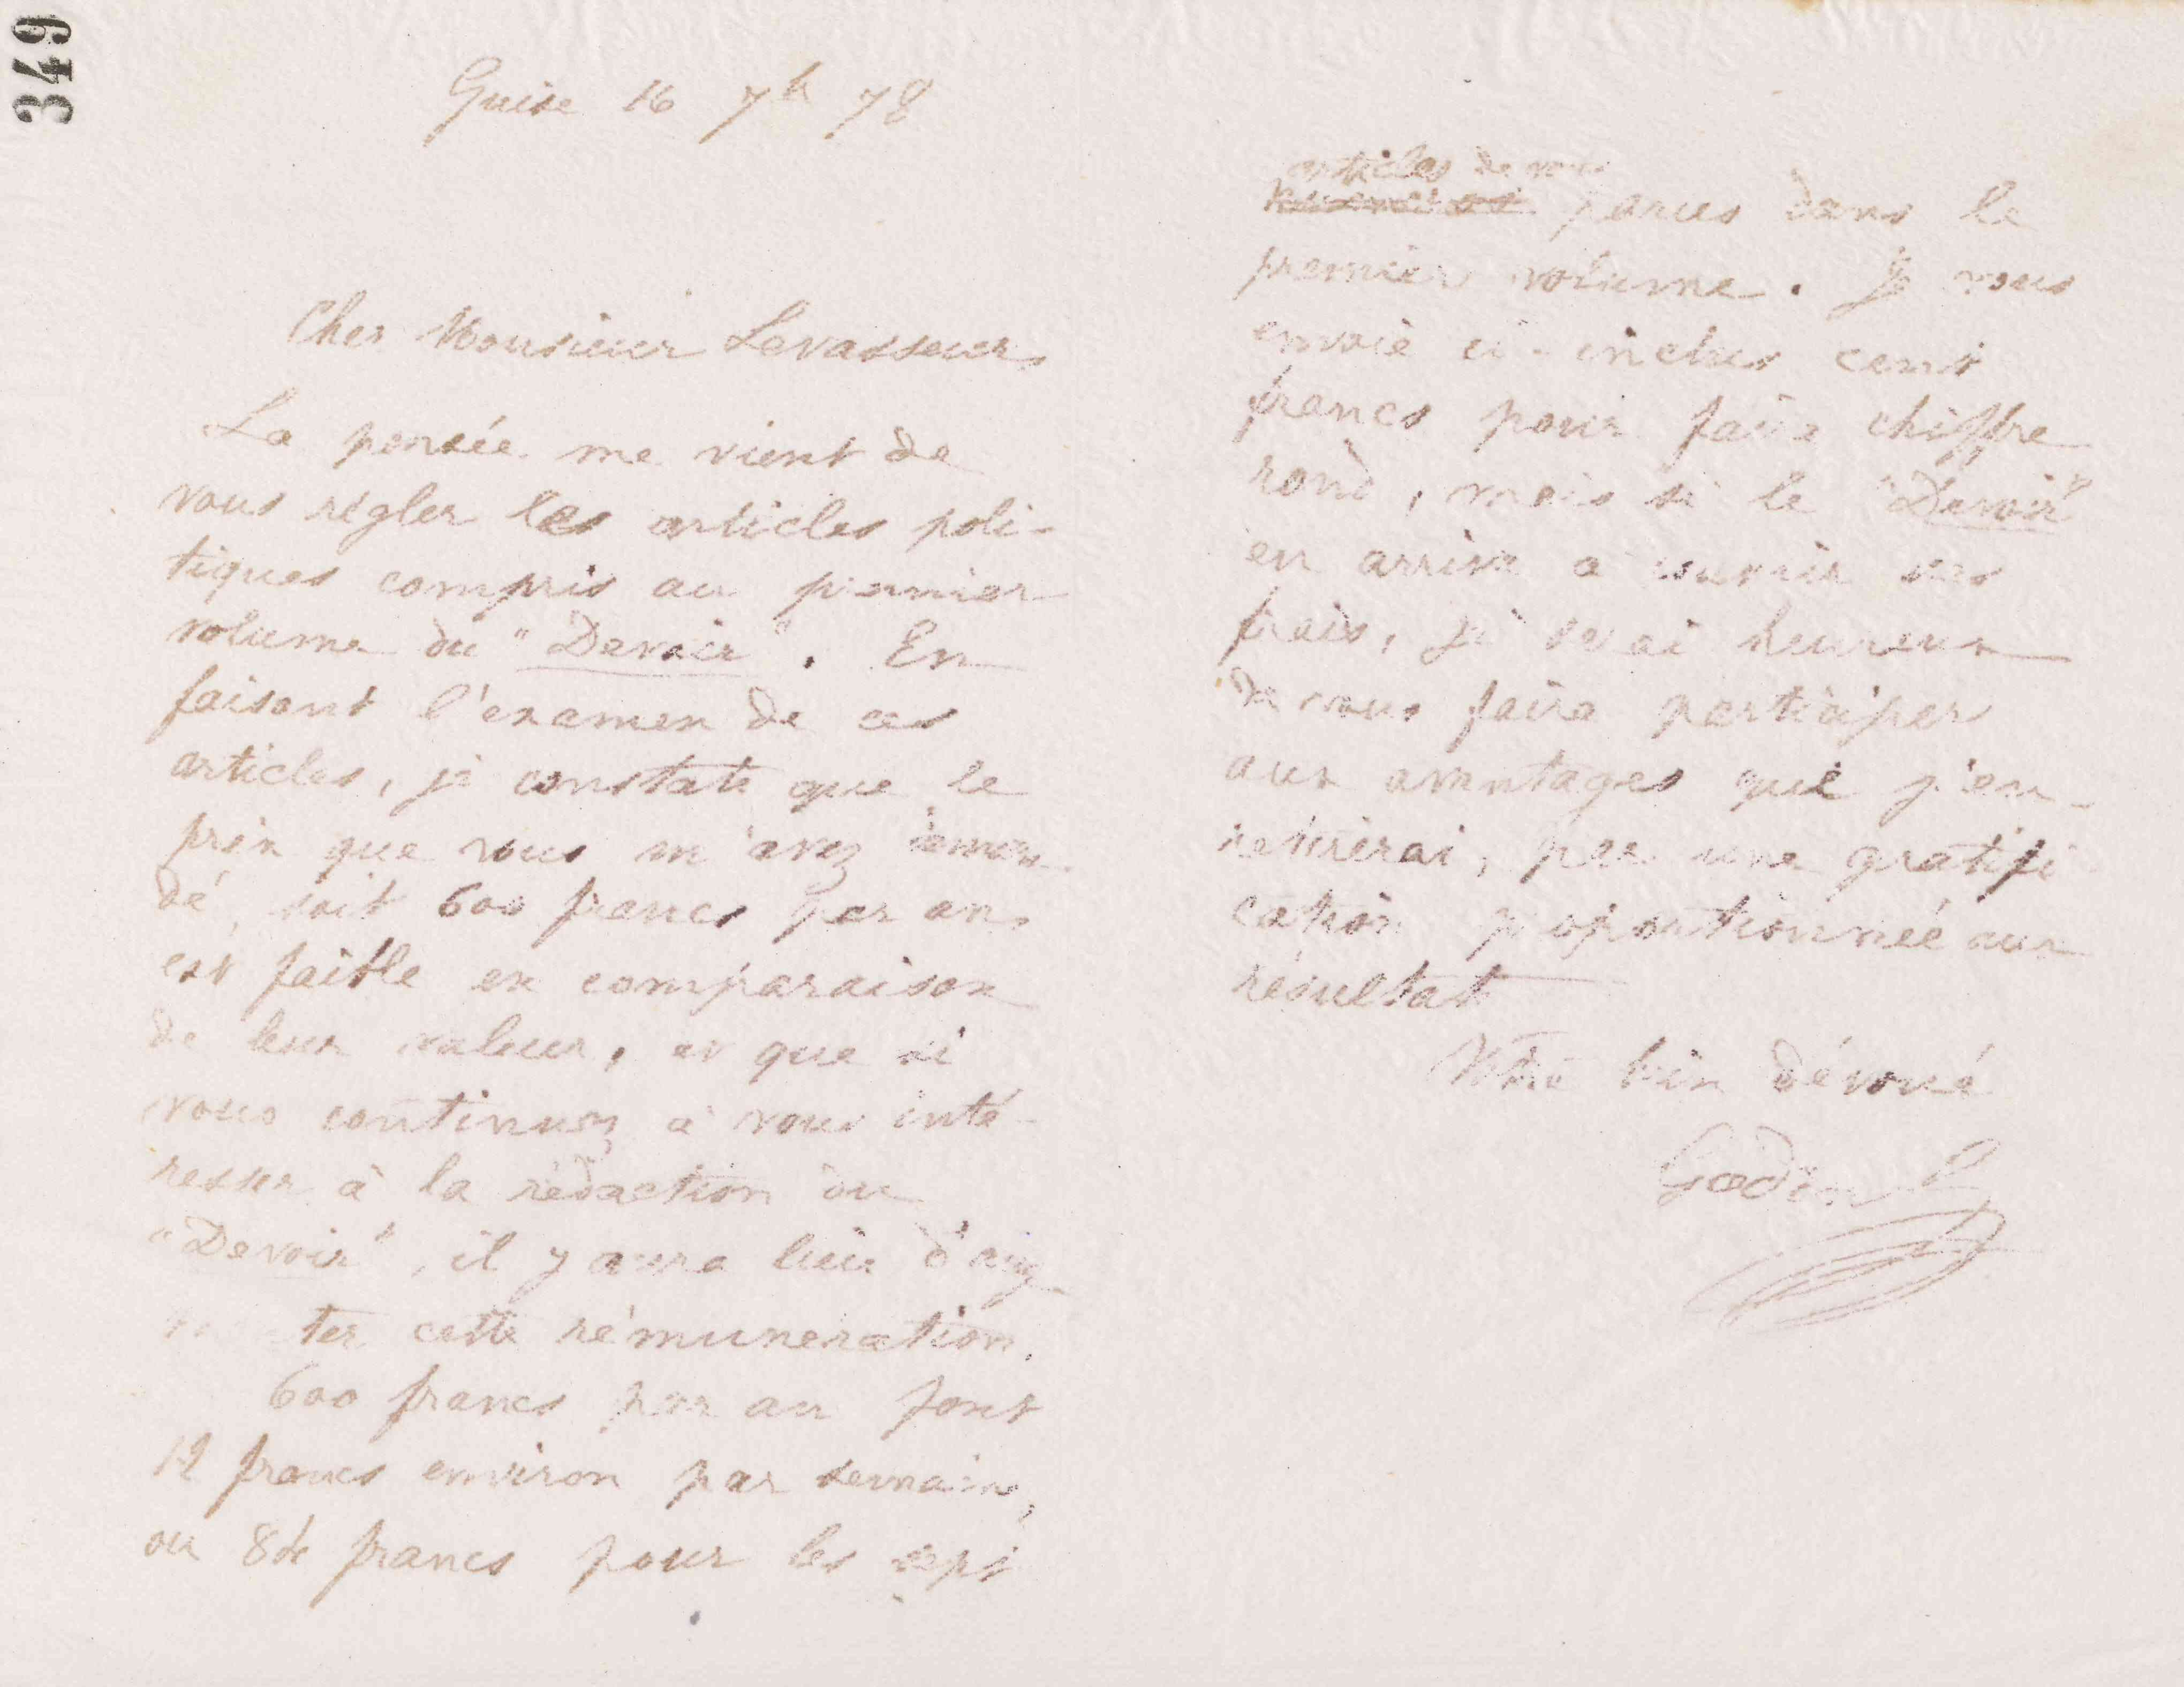 349
Guise 16 7b 78
Cher Monsieur Levasseur,
La pensée me vient de
vous régler les articles poli-
tiques compris au premier
volume du "Devoir". En
faisant l'examen de ces
articles, je constate que le
prix que vous m'avez deman-
dé, soit 600 francs par an,
est faible en comparaison
de leur valeur, et que si
vous continuez à vous inté-
resser à la rédaction du
"Devoir", il y aura lieu d'aug-
ter cette rémunération.
600 francs par an font
12 francs environ par semaine,
ou 84 francs pour les sept
articles de vous
parus dans le
premier volume. Je vous
envoie ci-inclus cent
francs pour faire chiffre
rond, mais si le "Devoir"
en arrive à couvrir ses
frais, je serai heureux
de vous faire participer
aux avantages que j'en
retirerai, par une gratifi
cation proportionnée aux
résultats
Votre bien dévoué
Godin